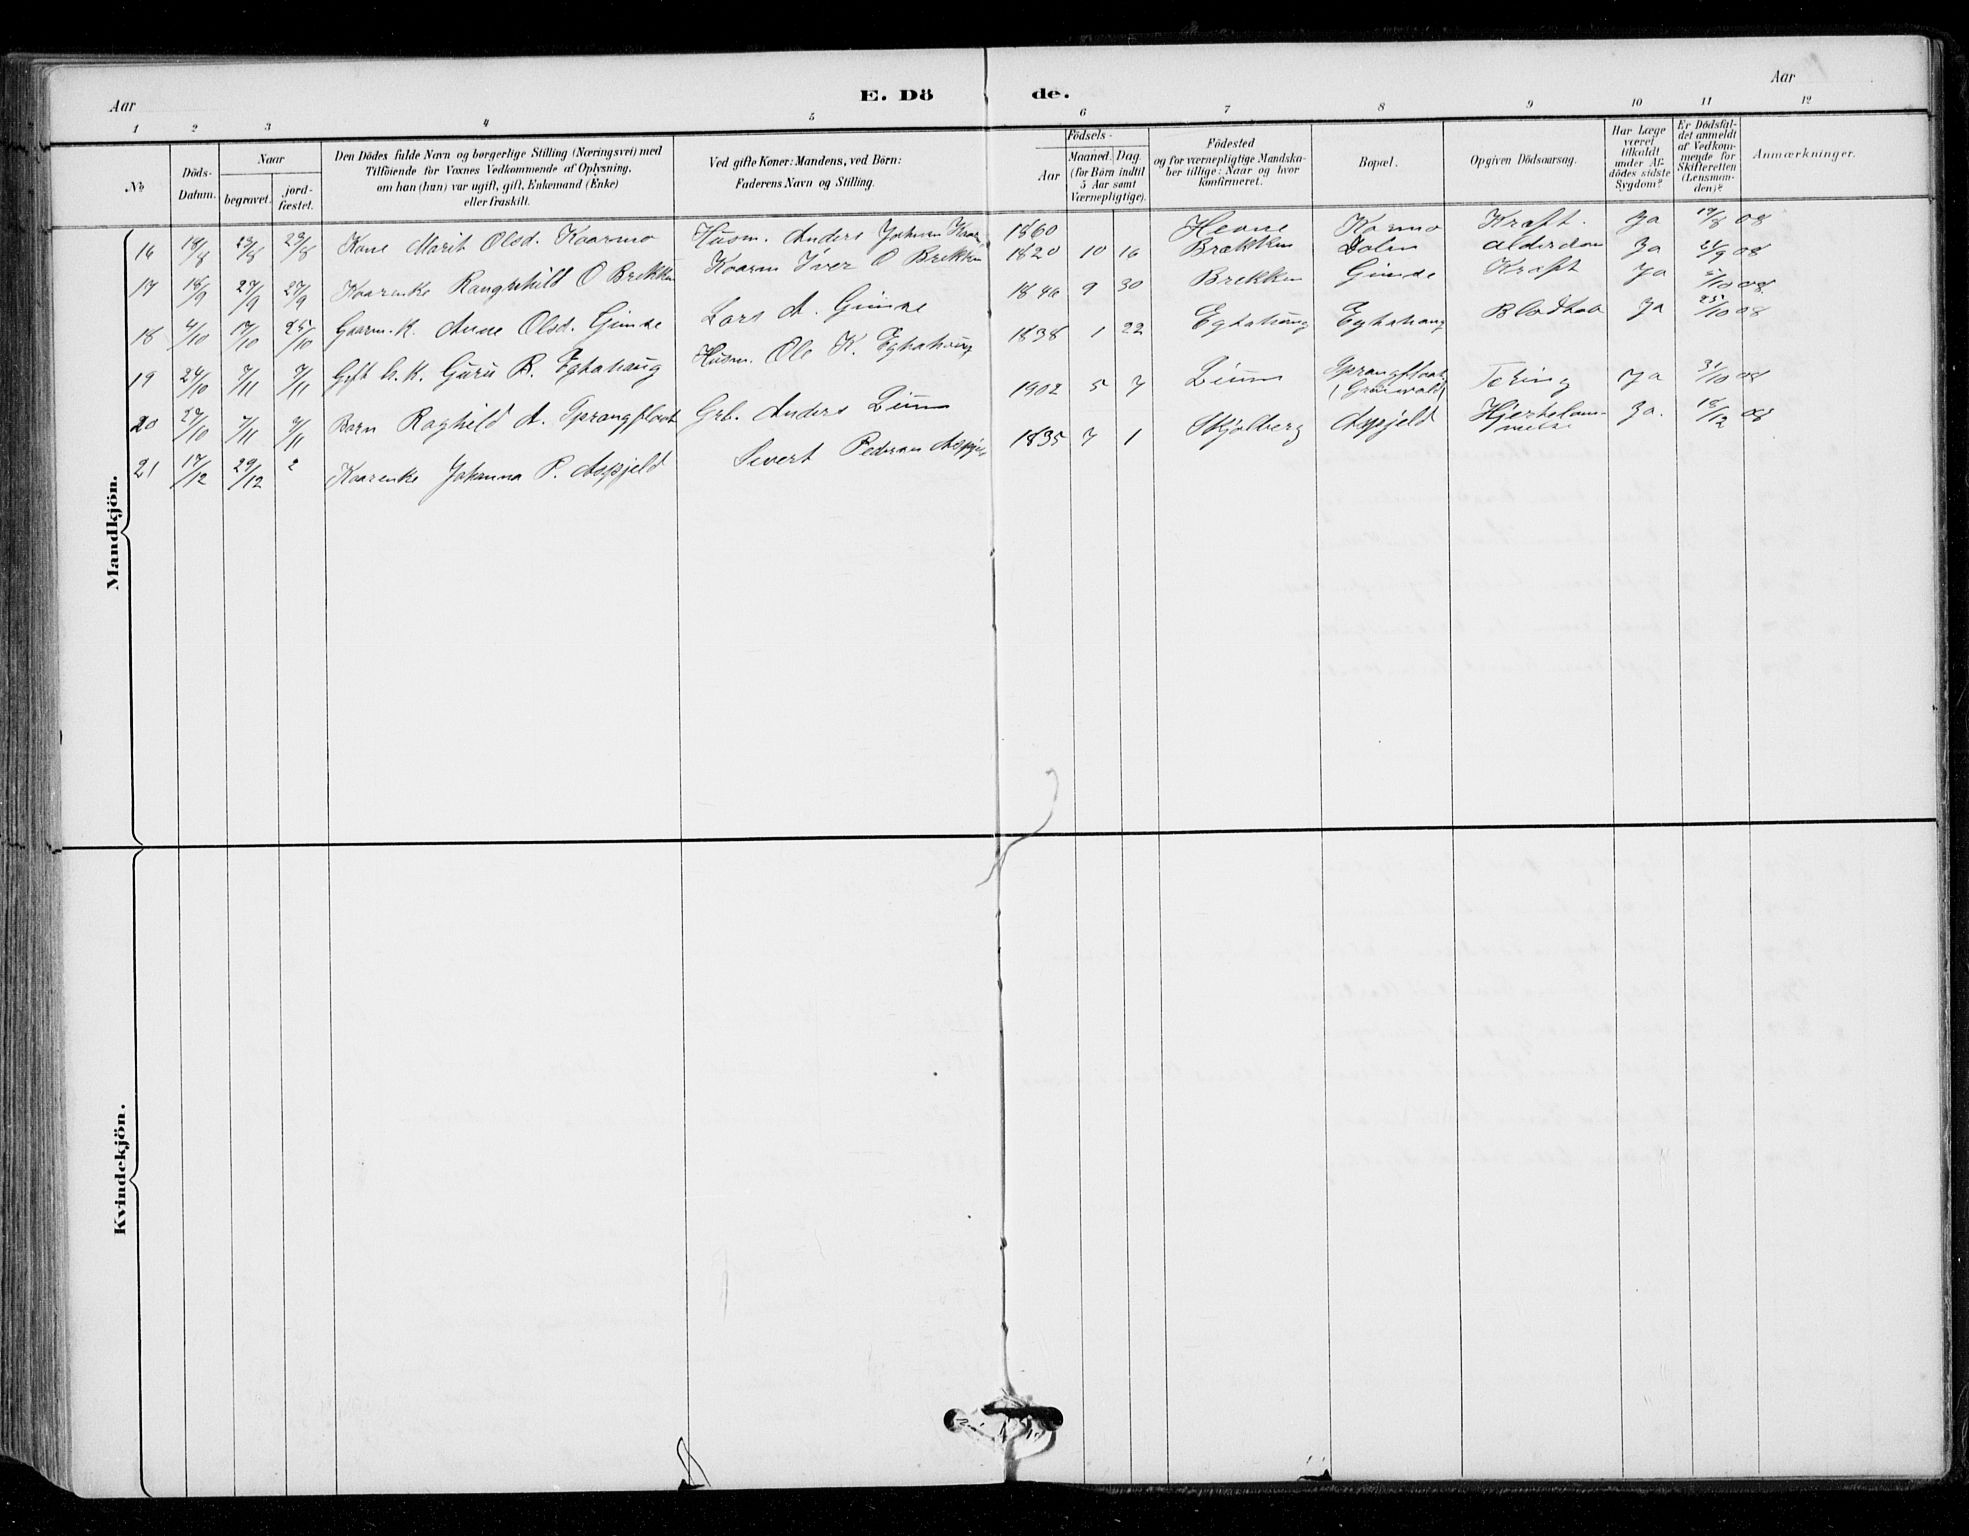 Aar
E. Dö de.
Aar
1 2 3 4 5 6 7 8 9 10 11 12
№
Döds-
Datum.
Naar
begravet.
jord-
fæstet.
Den Dödes fulde Navn og borgerlige Stilling (Næringsvei) med
Tilföiende for Voxnes Vedkommende af Oplysning,
om han (hun) var ugift, gift, Enkemand (Enke)
eller fraskilt.
Ved gifte Koner: Mandens, ved Börn:
Faderens Navn og Stilling.
Födsels-
Aar
Maaned. Dag
(for Börn indtil
5 Aar samt
Værnepligtige).
Födested
og for værnepligtige Mandska-
ber tillige: Naar og hvor
konfirmeret.
Bopæl.
Opgiven Dödsaarsag.
Har Læge
været
tilkaldt
under Af-
dödes sidste
Sygdom?
Er Dödsfal-
det anmeldt
af Vedkom-
mende for
Skifteretten
(Lensman-
den)?
Anmærkninger.
16 18/8 23/8 23/8 Kone Marit Olsd. Kaarmo Husm. Anders Johnsen 1860 Hevne Kormo Kræft. Ja 19/8 08
17 18/9 27/9 27/9 Kaarenke Ranghild O Brekken Kaarm Iver O Brekken 1820 10 16 Brekken Dalen Alderdom Ja 24/9 08
18 4/10 17/10 25/10 Gaarm. K. Anne Olsd. Gimse Lars A. Gimse 1846 9 30 Brekken Gimse Kræft Ja 5/10 08
19 24/10 7/11 7/11 Gift h. K. Guru R. Egtahaug Husm. Ole K. Egtahaug 1838 1 22 Egtahaug Egtahaug Blodtab Ja 25/10 08
20 27/10 7/11 7/11 Barn Raghild A. Sprangflaat Grb. Anders Lium 1902 5 7 Lium Sprangflaat (Grönvold) Tæring Ja 31/10 08
21 17/12 29/12 2 Kaarenke Johanna P. Aspjeld Sivert Pedersen 1835 7 1 Skjölberg Aspjeld Hjertelam-
melse Ja. 18/12 08
Mandkjön.
Kvindekjön.